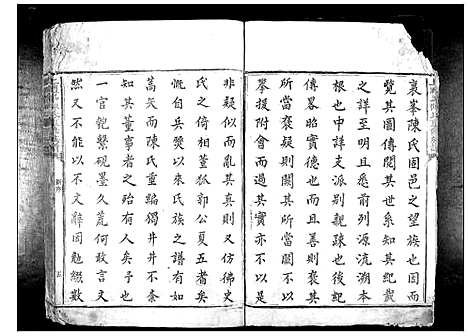 襄峯陳氏固邑之望族也因而
覽其圖傳閱其世系知其紀載
之詳至明且悉前列源流溯本
根也中詳支派別親疎也後紀
傳畧昭實德也而且善則褒其
所當褒疑則闕其所當闕不以
攀援附會而過其實亦不以是
非疑似而亂其真則又仿佛史
氏之倚相董狐郭公夏五者矣
慨自兵燹以來氏族之譜有如
蒿矢而陳氏重編獨井井不紊
知其董事者之有人矣予也
一官匏繫硯墨久荒何敢言文
然又不能以不文辭因勉綴數